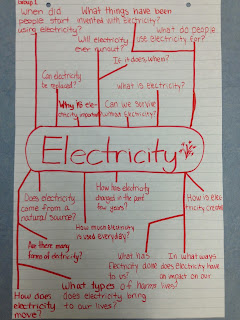 Group 1
When did
people start
using electricity?
What things have been
invented with Electricity?
Will electricity
ever runout?
If it does, When?
What do people
use electricity for?
Can electricity
be replaced?
What is electricity?
Why is ele-
ctricity important
Can we survive
without Electricity?
Electricity
Does electricity
come from a
natural source?
How has electricity
changed in the past
few years?
How is ele
ctricity created
How much Electricity
is used everyday?
Are there many
forms of electricity?
What has
Electricity done
to us?
In what ways
does Electricity have
an impact on our
lives?
What types of harm
does electricity bring
to our lives?
How does
electricity
move?